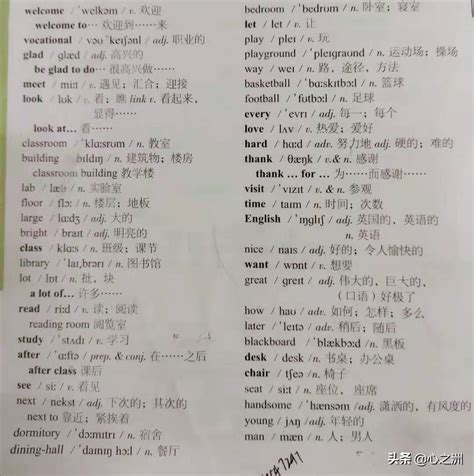 welcome / 'welkəm / v. 欢迎
welcome to… 欢迎到……来
vocational / vəʊ'keɪʃənl / adj. 职业的
glad / glæd / adj. 高兴的
be glad to do… 很高兴做……
meet / miːt / v. 遇见；汇合；迎接
look / lʊk / v. 看；瞧 link v. 看起来，
显得……
look at… 看……
classroom / 'klɑːsrʊm / n. 教室
building / 'bɪldɪŋ / n. 建筑物；楼房
classroom building 教学楼
lab / læb / n. 实验室
floor / flɔː / n. 楼层；地板
large / lɑːdʒ / adj. 大的
bright / braɪt / adj. 明亮的
class / klɑːs / n. 班级；课节
library / 'laɪˌbrərɪ / n. 图书馆
lot / lɒt / n. 批，块
a lot of… 许多……
read / riːd / v. 读；阅读
reading room 阅览室
study / 'stʌdɪ / v. 学习
after / 'ɑːftə / prep. & conj. 在……之后
after class 课后
see / siː / v. 看见
next / nekst / adj. 下次的；其次的
next to 靠近；紧挨着
dormitory / 'dɔːmɪtrɪ / n. 宿舍
dining-hall / 'daɪnɪŋ hɔːl / n. 餐厅
bedroom / 'bedrʊm / n. 卧室；寝室
let / let / v. 让
play / pleɪ / v. 玩
playground / 'pleɪgraʊnd / n. 运动场；操场
way / weɪ / n. 路，途径，方法
basketball / 'bɑːskɪtbɔːl / n. 篮球
football / 'fʊtbɔːl / n. 足球
every / 'evrɪ / adj. 每一；每个
love / lʌv / v. 热爱；爱好
hard / hɑːd / adv. 努力地 adj. 硬的；难的
thank / θæŋk / v. & n. 感谢
thank … for… 为……而感谢……
visit / 'vɪzɪt / v. & n. 参观
time / taɪm / n. 时间；次数
English / 'ɪŋglɪʃ / adj. 英国的，英语的
n. 英语
nice / naɪs / adj. 好的；令人愉快的
want / wɒnt / v. 想要
great / greɪt / adj. 伟大的，巨大的，
（口语）好极了
how / haʊ / adv. 如何；怎样；多么
later / 'leɪtə / adv. 稍后；随后
blackboard / 'blækbɔːd / n. 黑板
desk / desk / n. 书桌；办公桌
chair / tʃeə / n. 椅子
seat / siːt / n. 座位，座席
handsome / 'hænsəm / adj. 潇洒的，有风度的
young / jʌŋ / adj. 年轻的
man / mæn / n. 人；男人
头条 @心之洲